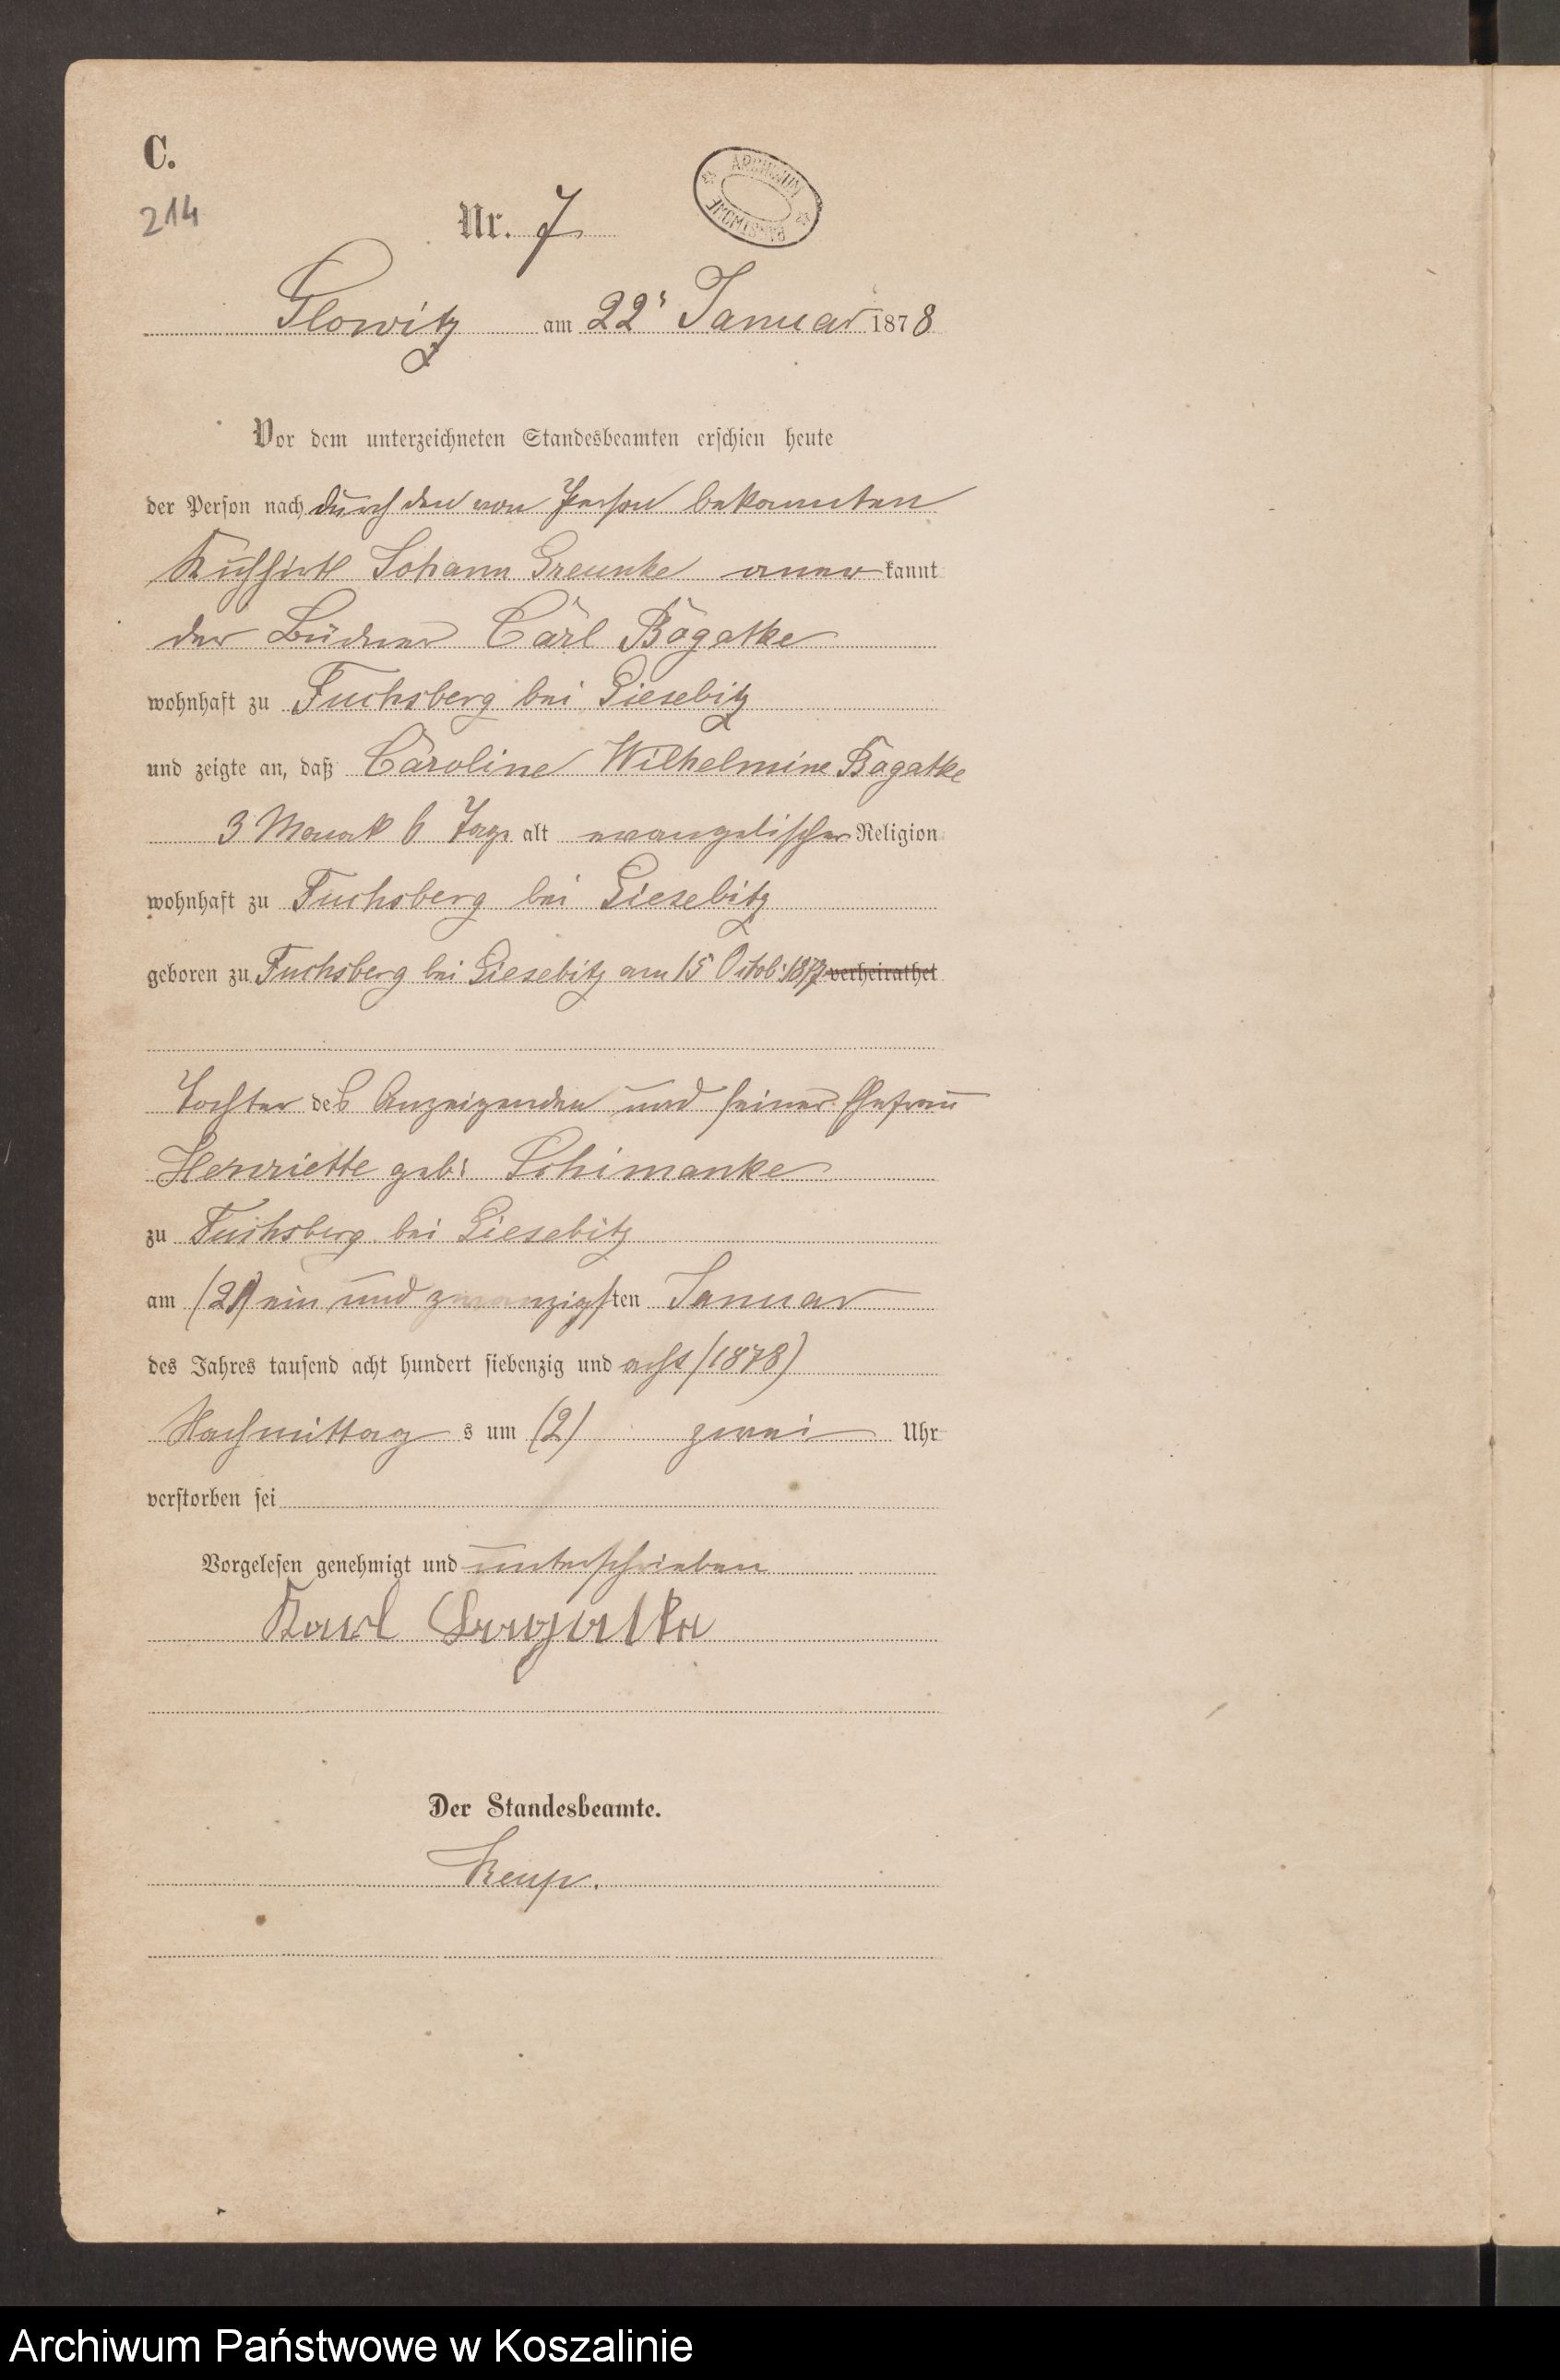 C.
214
Nr. 7
ARCHIWUM PAŃSTWOWE
Glowitz am 22t Januar 1878
Vor dem unterzeichneten Standesbeamten erschien heute
der Person nach durch den von Person bekannten
Kuhhirt Johann Greunke aner kannt
der Büdner Carl Bogatke
wohnhaft zu Fuchsberg bei Giesebitz
und zeigte an, daß Caroline Wilhelmine Bogatke
3 Monat 6 Tage alt evangelischer Religion
wohnhaft zu Fuchsberg bei Giesebitz
geboren zu Fuchsberg bei Giesebitz am 15 Octob: 1877 verheirathet
Tochter des Anzeigenden und seiner Ehefrau
Henriette geb: Schimanke
zu Fuchsberg bei Giesebitz
am (21) ein und zwanzigsten Januar
des Jahres tausend acht hundert siebenzig und acht (1878)
Nachmittag s um (2) zwei Uhr
verstorben sei
Vorgelesen genehmigt und unterschrieben
Karl
Der Standesbeamte.
Archiwum Państwowe w Koszalinie